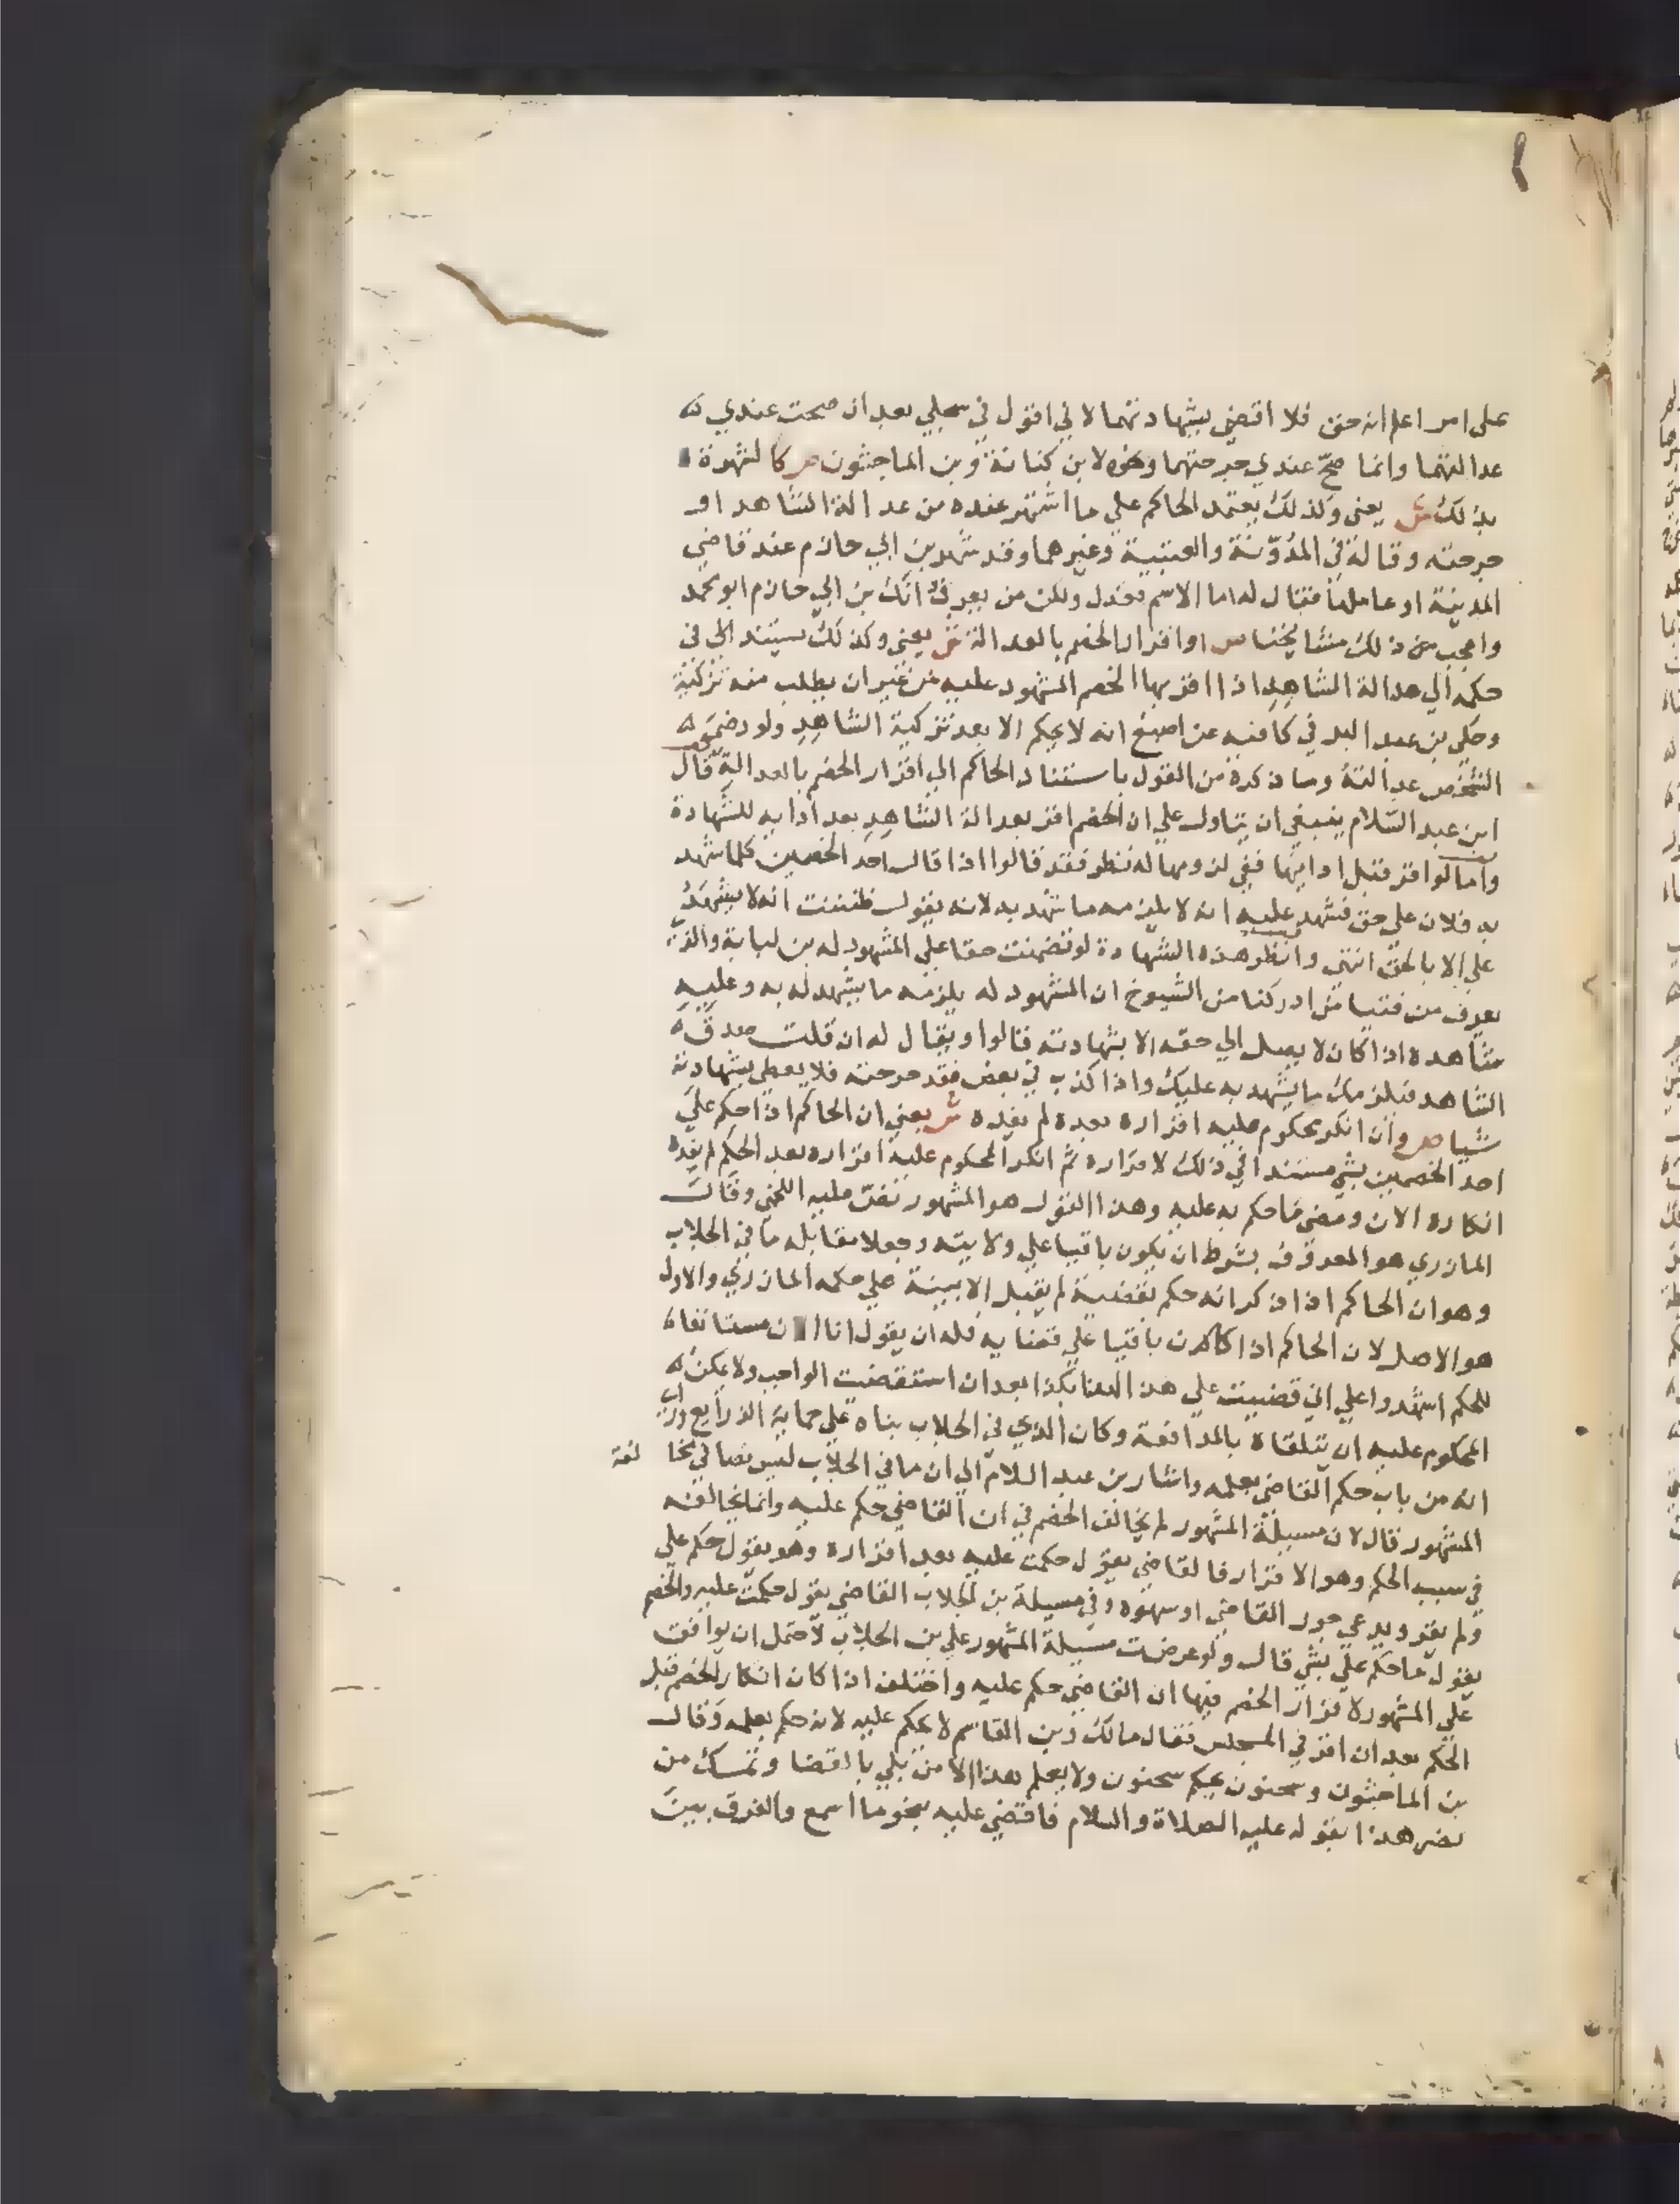 على امر اعلم انه حق فلا اقضي بشهادتهما لاني اقول في سجلي بعد ان صحت عندي
عدالتهما وانما صح عندي جرحتهما ونحوه لابن كنانة وبن الماجشون ص كالشهرة
بذلك ش يعني وكذلك يعتمد الحاكم علي ما اشتهر عنده من عدالة الشاهد او
جرحته وقاله في المدونة والعتبية وغيرهما وقد شهد بن ابي حازم عند قاضي
المدينة او عاملها فقال له اما الاسم فعدل ولكن من يعرف انك بن ابي حازم ابو محمد
واعجب من ذلك مشايخنا ص او اقرار الخصم بالعدالة ش يعني وكذلك يستند الى في
حكمه الي عدالة الشاهد اذا اقر بها الخصم المشهود عليه من غير ان يطلب منه تزكية
وحكي بن عبد البر في كافيه عن اصبغ انه لا يحكم الا بعد تزكية الشاهد ولو رضي
الشخص عدالته وما ذكره من القول باستناد الحاكم الي اقرار الخصم بالعدالة قال
ابن عبد السلام ينبغي ان يتاول علي ان الخصم اقر بعدالة الشاهد بعد ادايه للشهادة
واما لو اقر قبل ادايها ففي لزومها له نظر فقد قالوا اذا قال احد الخصمين كلما شهد
به فلان علي حق فشهد عليه انه لا يلزمه ما شهد به لانه يقول ظننت انه لا يشهد
علي الا بالحق انتهي وانظر هذه الشهادة لو تضمنت حقا علي المشهود له بن لبابة والذي
يعرف من فتيا من ادركنا من الشيوخ ان المشهود له يلزمه ما يشهد له به وعليه
مشاهده اذا كان لا يصل الي حقه الا بشهادته قالوا ويقال له ان قلت صدق
الشاهد فيلزمك ما يشهد به عليك واذا كذب في بعض فقد جرحته فلا يعطي بشهادته
شيا ص وان انكر محكوم عليه اقراره بعده لم يفده ش يعني ان الحاكم اذا حكم علي
احد الخصمين بشي مستندا في ذلك لاقراره ثم انكر المحكوم عليه اقراره بعد الحكم لم يفده
انكاره الان ومضي ما حكم به عليه وهذا القول هو المشهور نص عليه اللخمي وقال
المازري هو المعروف بشرط ان يكون باقيا علي ولايته وجعلا مقابله ما في الجلاب
وهو ان الحاكم اذا ذكر انه حكم بقضية لم يقبل الا ببينة علي حكمه المازري والاول
هو الاصل لان الحاكم اذا كان باقيا علي قضايه فله ان يقول انا الان مستانفا
للحكم اشهدوا علي اني قضيت علي هذا بكذا بعد ان استقضيت الواجب ولا يمكن
المحكوم عليه ان يتلقاه بالمدافعة وكان الذي في الجلاب بناه علي حماية الذرايع وراي
انه من باب حكم القاضي بعلمه واشار بن عبد السلام الي ان ما في الجلاب ليس نصا في مخالفة
المشهور قال لان مسيلة المشهور لم يخالف الخصم في ان القاضي حكم عليه وانما يخالفه
في سبب الحكم وهو الاقرار فالقاضي يقول حكمت عليه بعد اقراره وهو يقول حكم علي
ولم يقر ويدعي جور القاضي او سهوه وفي مسيلة بن الجلاب القاضي يقول حكمت عليه والخصم
يقول ما حكم علي بشي قال ولو عرضت مسيلة المشهور علي بن الجلاب لاحتمل ان يوافق
علي المشهور لاقرار الخصم فيها ان القاضي حكم عليه واختلف اذا كان انكار الخصم قبل
الحكم بعد ان اقر في المجلس فقال مالك وبن القاسم لا يحكم عليه لانه حكم بعلمه وقال
بن الماجشون وسحنون يحكم سحنون ولا يعلم هذا الا من بلي بالقضا وتمسك من
نصر هذا بقوله عليه الصلاة والسلام فاقضي عليه بنحو ما اسمع والفرق بين